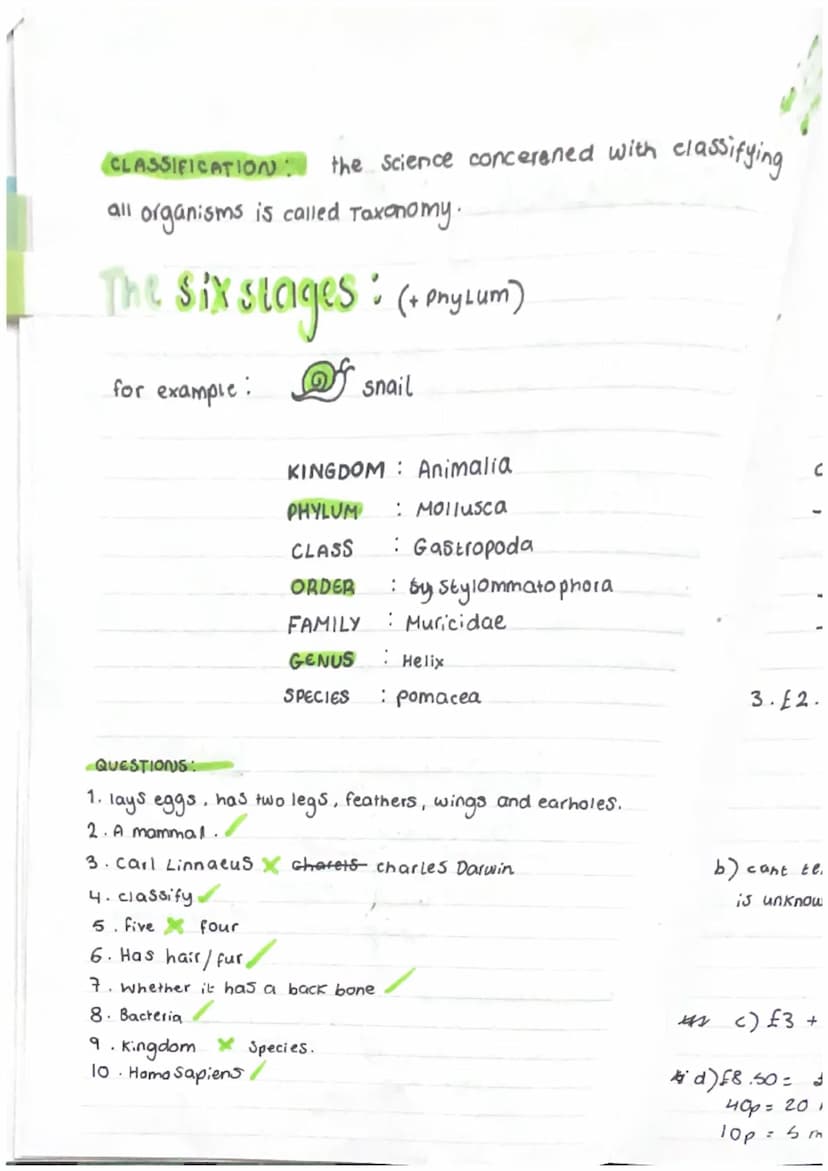 CLASSIFICATION: the science concerened with classifying
all organisms is called Taxonomy.
The six stages: (+ Phylum)
for example: snail
KINGDOM : Animalia
PHYLUM : Mollusca
CLASS : Gastropoda
ORDER : Stylommatophora
FAMILY : Muricidae
GENUS : Helix
SPECIES : pomacea
QUESTIONS:
1. lays eggs, has two legs, feathers, wings and earholes.
2. A mammal.
3. Carl Linnaeus charles Darwin
4. classify
5. five four
6. Has hair/fur
7. whether it has a back bone
8. Bacteria
9. Kingdom Species.
10. Homo sapiens
3. £2.
b) cant
is
c) £3 +
d) £8.50 =
40p = 20
10p = 5